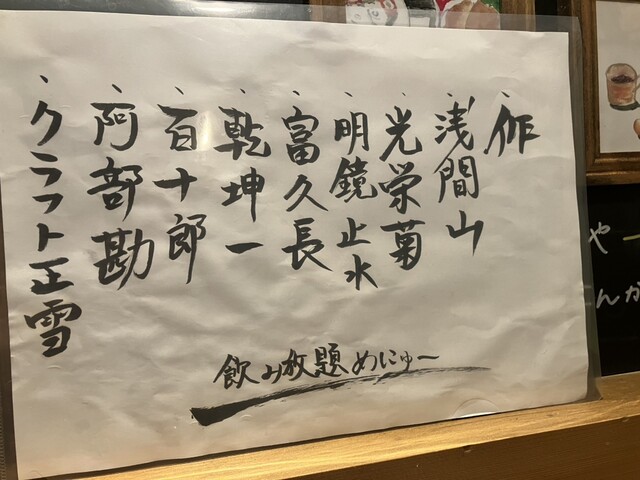 、作
、浅間山
、光栄菊
、明鏡止水
、富久長
、乾坤一
、百十郎
、阿部勘
、クラフト正雪
飲み放題めにゅー